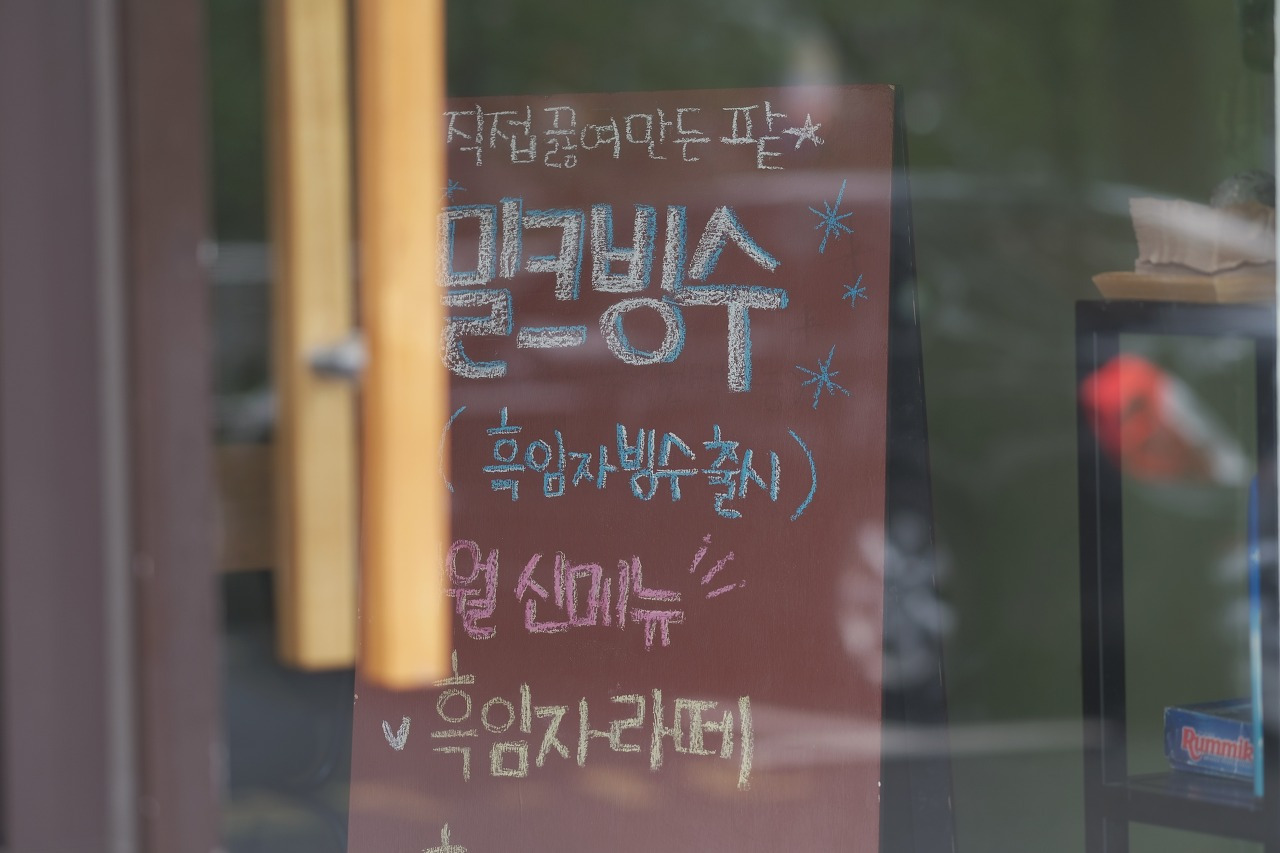 직접 끓여만든 팥
밀크빙수
(흑임자빙수출시)
월 신메뉴
흑임자라떼
Rummik